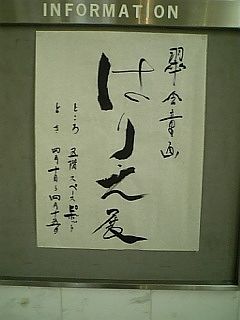 INFORMATION
翠会書画
はりえ展
ところ 五階スペースポケット
とき 四月十日〜四月十五日